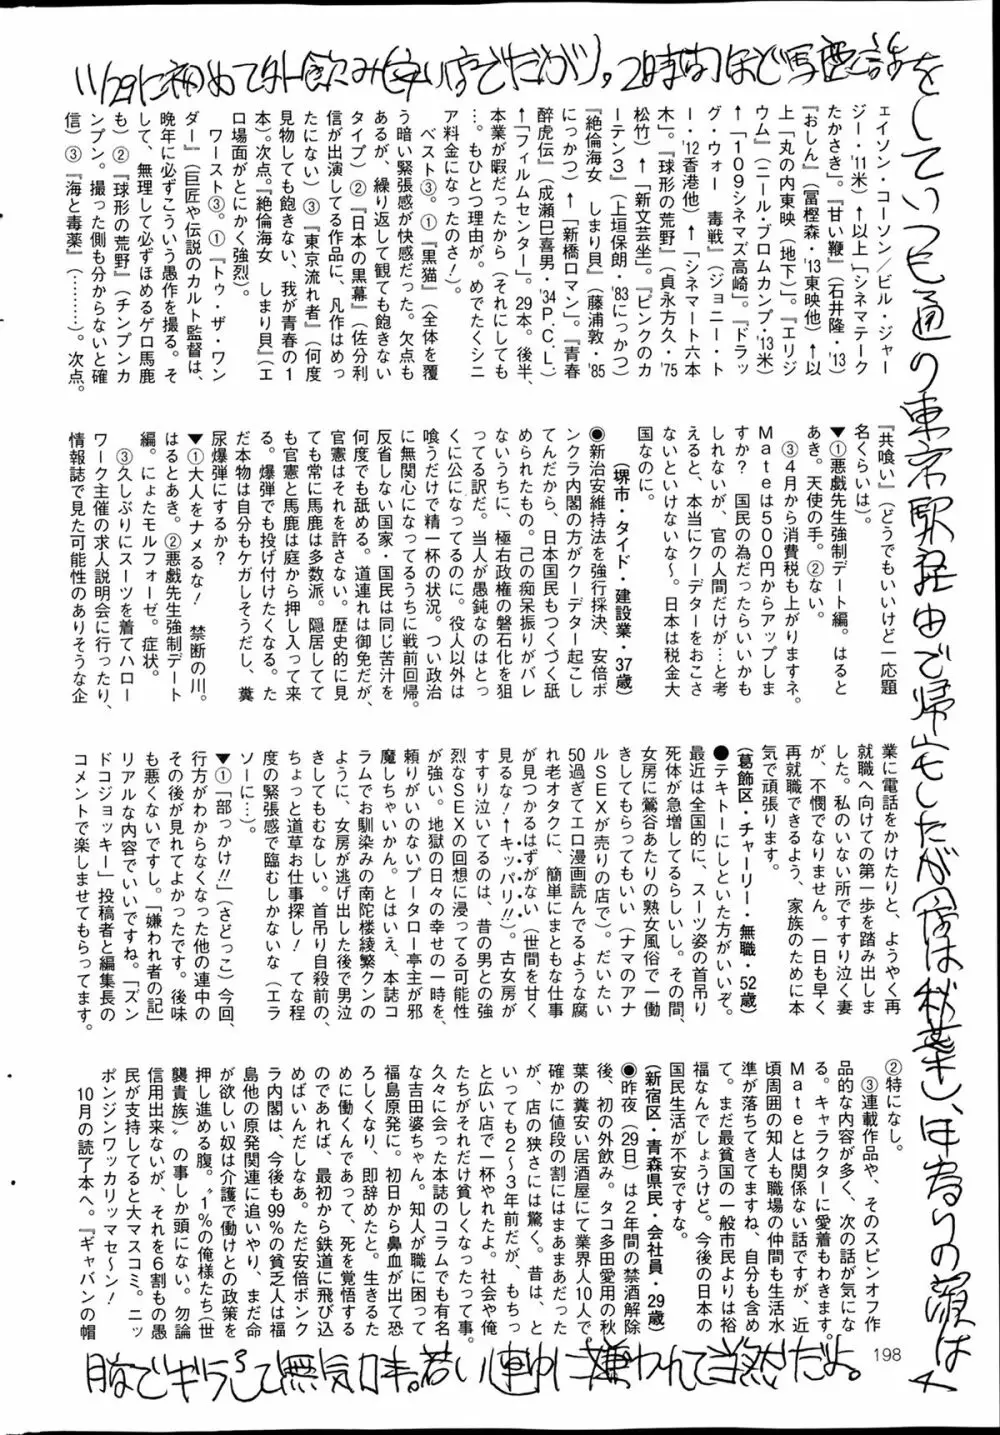 11/29に初めて外飲み(安い店でだが)。2時間ほど馬鹿話を
していつも通り東京駅経由で帰宅したが(店は秋葉)、
ェイソン・コーソン/ビル・ジャー
ジー・'11米)↑以上「シネマテーク
たかさき」。『甘い鞭』(石井隆・'13)
『おしん』(冨樫森・'13東映他)↑以
上「丸の内東映(地下)」。『エリジ
ウム』(ニール・ブロムカンプ・'13米)
↑「109シネマズ高崎」。『ドラッ
グ・ウォー 毒戦』(ジョニー・ト
ー・'12香港他)↑「シネマート六本
木」。『球形の荒野』(貞永方久・'75
松竹)↑「新文芸坐」。『ピンクのカ
ーテン3』(上垣保朗・'83にっかつ)
『絶倫海女 しまり貝』(藤浦敦・'85
にっかつ)↑「新橋ロマン」。『青春
酔虎伝』(成瀬巳喜男・'34P.C.L.)
↑「フィルムセンター」。29本。後半、
本業が暇だったから(それにしても
…。もひとつ理由が。めでたくシニ
ア料金になったのさ!)。
ベスト③。①『黒猫』(全体を覆
う暗い緊張感が快感だった。欠点も
あるが、繰り返して観ても飽きない
タイプ)②『日本の黒幕』(佐分利
信が出演してる作品に、凡作はめっ
たにない)③『東京流れ者』(何度
見物しても飽きない、我が青春の1
本)。次点。『絶倫海女 しまり貝』(エ
ロ場面がとにかく強烈)。
ワースト③。①『トゥ・ザ・ワン
ダー』(巨匠や伝説のカルト監督は、
晩年に必ずこういう愚作を撮る。そ
して、無理して必ずほめるゲロ馬鹿
も)②『球形の荒野』(チンプンカ
ンプン。撮った側も分からないと確
信)③『海と毒薬』(………)。次点。
『共喰い』(どうでもいいけど一応題
名くらいは)。
▼①悪戯先生強制デート編。はると
あき。天使の手。②ない。
③4月から消費税も上がりますネ。
Mateは500円からアップしま
すか? 国民の為だったらいいかも
しれないが、官の人間だけが…と考
えると、本当にクーデターをおこさ
ないといけないな~。日本は税金大
国なのに。
(堺市・タイド・建設業・37歳)
●新治安維持法を強行採決、安倍ボ
ンクラ内閣の方がクーデター起こし
てんだから、日本国民もつくづく舐
められたもの。己の痴呆振りがバレ
ないうちに、極右政権の磐石化を狙
ってる訳だ。当人が愚鈍なのはとっ
くに公になってるのに。役人以外は
喰うだけで精一杯の状況。つい政治
に無関心になってるうちに戦前回帰。
反省しない国家・国民は同じ苦汁を
何度でも舐める。道連れは御免だが、
官憲はそれを許さない。歴史的に見
ても常に馬鹿は多数派。隠居してて
も官憲と馬鹿は庭から押し入って来
る。爆弾でも投げ付けたくなる。た
だ本物は自分もケガしそうだし、糞
尿爆弾にするか?
▼①大人をナメるな! 禁断の川。
はるとあき。②悪戯先生強制デート
編。にょたモルフォーゼ。症状。
③久しぶりにスーツを着てハロー
ワーク主催の求人説明会に行ったり、
情報誌で見た可能性のありそうな企
業に電話をかけたりと、ようやく再
就職へ向けての第一歩を踏み出しま
した。私のいない所ですすり泣く妻
が、不憫でなりません。一日も早く
再就職できるよう、家族のために本
気で頑張ります。
(葛飾区・チャーリー・無職・52歳)
●テキトーにしといた方がいいぞ。
最近は全国的に、スーツ姿の首吊り
死体が急増してるらしいし。その間、
女房に鶯谷あたりの熟女風俗で一働
きしてもらってもいい(ナマのアナ
ルSEXが売りの店で)。だいたい
50過ぎてエロ漫画読んでるような腐
れ老オタクに、簡単にまともな仕事
が見つかるはずがない(世間を甘く
見るな!↑キッパリ!!)。古女房が
すすり泣いてるのは、昔の男との強
烈なSEXの回想に浸ってる可能性
が強い。地獄の日々の幸せの一時を、
頼りがいのないプータロー亭主が邪
魔しちゃいかん。とはいえ、本誌コ
ラムでお馴染みの南陀楼綾繁クンの
ように、女房が逃げ出した後で男泣
きしてもむなしい。首吊り自殺前の、
ちょっと道草お仕事探し! てな程
度の緊張感で臨むしかないな(エラ
ソーに…)。
▼①「部っかけ!!」(さどっこ)今回、
行方がわからなくなった他の連中の
その後が見れてよかったです。後味
も悪くないですし。「嫌われ者の記」
リアルな内容でいいですね。「ズン
ドコジョッキー」投稿者と編集長の
コメントで楽しませてもらってます。
②特になし。
③連載作品や、そのスピンオフ作
品的な内容が多く、次の話が気にな
る。キャラクターに愛着もわきます。
Mateとは関係ない話ですが、近
頃周囲の知人も職場の仲間も生活水
準が落ちてきてますね、自分も含め
て。まだ最貧国の一般市民よりは裕
福なんでしょうけど。今後の日本の
国民生活が不安ですな。
(新宿区・青森県民・会社員・29歳)
●昨夜(29日)は2年間の禁酒解除
後、初の外飲み。タコ多田愛用の秋
葉の糞安い居酒屋にて業界人10人で。
確かに値段の割にはまあまあだった
が、店の狭さには驚く。昔は、と
いっても2~3年前だが、もちっ
と広い店で一杯やれたよ。社会や俺
たちがそれだけ貧しくなったって事。
久々に会った本誌のコラムでも有名
な吉田婆ちゃん。知人が職に困って
福島原発に。初日から鼻血が出て恐
ろしくなり、即辞めたと。生きるた
めに働くんであって、死を覚悟する
のであれば、最初から鉄道に飛び込
めばいんだしなあ。ただ安倍ボンク
ラ内閣は、今後も99%の貧乏人は福
島他の原発関連に追いやり、まだ命
が欲しい奴は介護で働けとの政策を
押し進める腹。〝1%の俺様たち(世
襲貴族)〟の事しか頭にない。勿論
信用出来ないが、それを6割もの愚
民が支持してると大マスコミ。ニッ
ポンジンワッカリマセ~ン!
10月の読了本へ。『ギャバンの帽
198
脂でギラついて無気力。若い連中に嫌われて当然だよ。